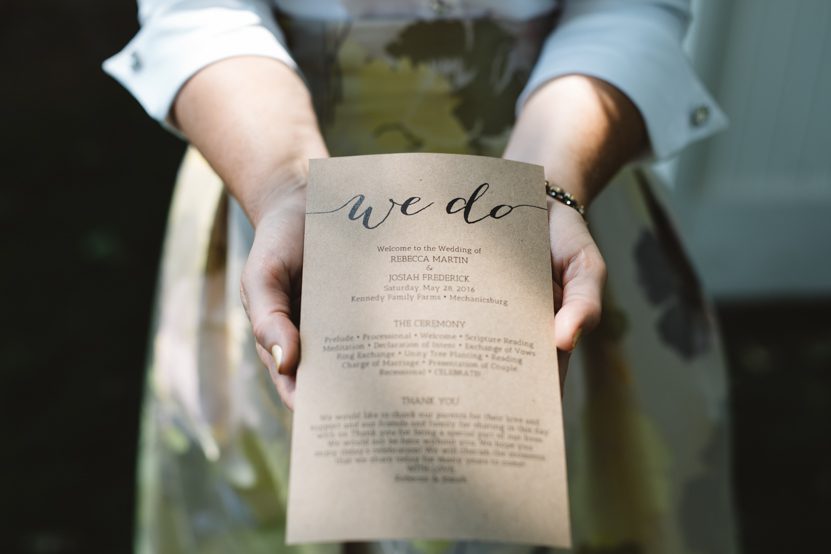 we do
Welcome to the Wedding of
REBECCA MARTIN
&
JOSIAH FREDERICK
Saturday, May 28, 2016
Kennedy Family Farms • Mechanicsburg
THE CEREMONY
Prelude • Processional • Welcome • Scripture Reading
Meditation • Declaration of Intent • Exchange of Vows
Ring Exchange • Unity Tree Planting • Reading
Charge of Marriage • Presentation of Couple
Recessional • CELEBRATE!
THANK YOU
We would like to thank our parents for their love and
support and our friends and family for sharing in this day
with us. Thank you for being a special part of our lives.
We would not be here without you. We hope you
enjoy today's celebration! We will cherish the moments
that we share today for many years to come!
WITH LOVE,
Rebecca &